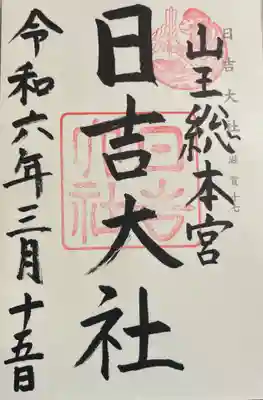 山王総本宮
日吉大社
令和六年三月十五日
日吉大社
日吉大社